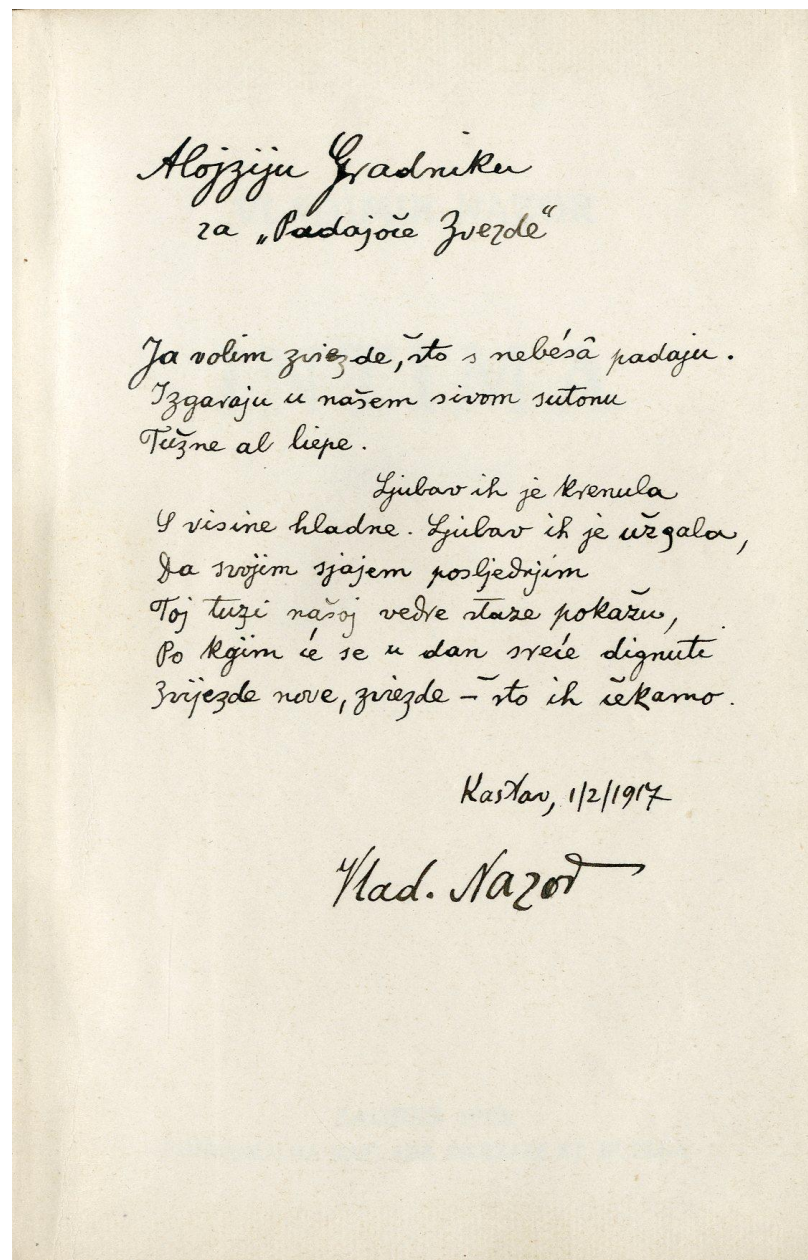 Alojziju Gradniku
za „Padajoče Zvezde“
Ja volim zviezde, što s nebésâ padaju.
Izgaraju u našem sivom sutonu
Tužne al liepe.
Ljubav ih je krenula
S visine hladne. Ljubav ih je užgala,
Da svojim sjajem posljednjim
Toj tuzi našoj vedre staze pokažu,
Po kojim će se u dan sreće dignuti
Zvijezde nove, zviezde – što ih čekamo.
Kastav, 1/2/1917
Vlad. Nazor